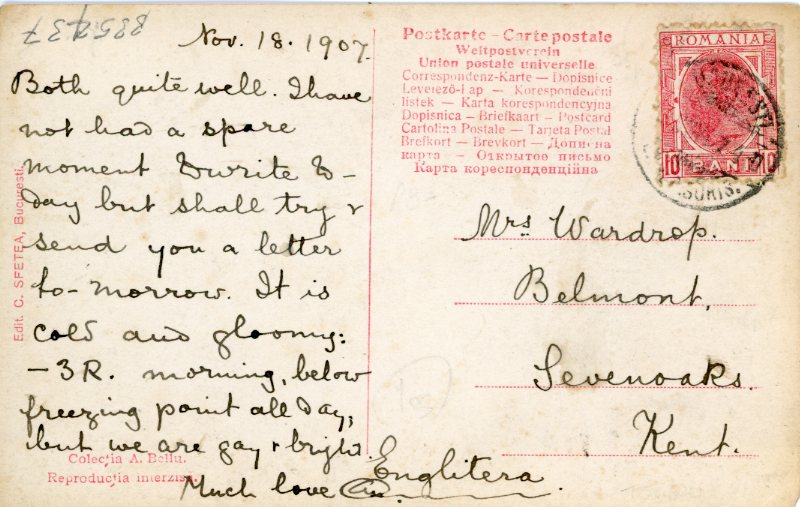 Nov. 18. 1907.
Both quite well. I have
not had a spare
moment to write to-
day but shall try &
send you a letter
to-morrow. It is
cold and gloomy:
-3R. morning, below
freezing point all day,
but we are gay & bright.
Much love
Edit. C. SFETEA, Bucuresti.
Colecția A. Bellu.
Reproducția interzisă.
Postkarte – Carte postale
Weltpostverein
Union postale universelle
Correspondenz-Karte — Dopisnice
Levelező-Lap — Korespondenční
listek — Karta korespondencyjna
Dopisnica — Briefkaart — Postcard
Cartolina Postale — Tarjeta Postal
Brefkort — Brevkort — Дописна
карта — Открытое письмо
Карта кореспонденційна
ROMANIA
10 BANI 10
Mrs Wardrop.
Belmont,
Sevenoaks.
Kent.
Englitera.